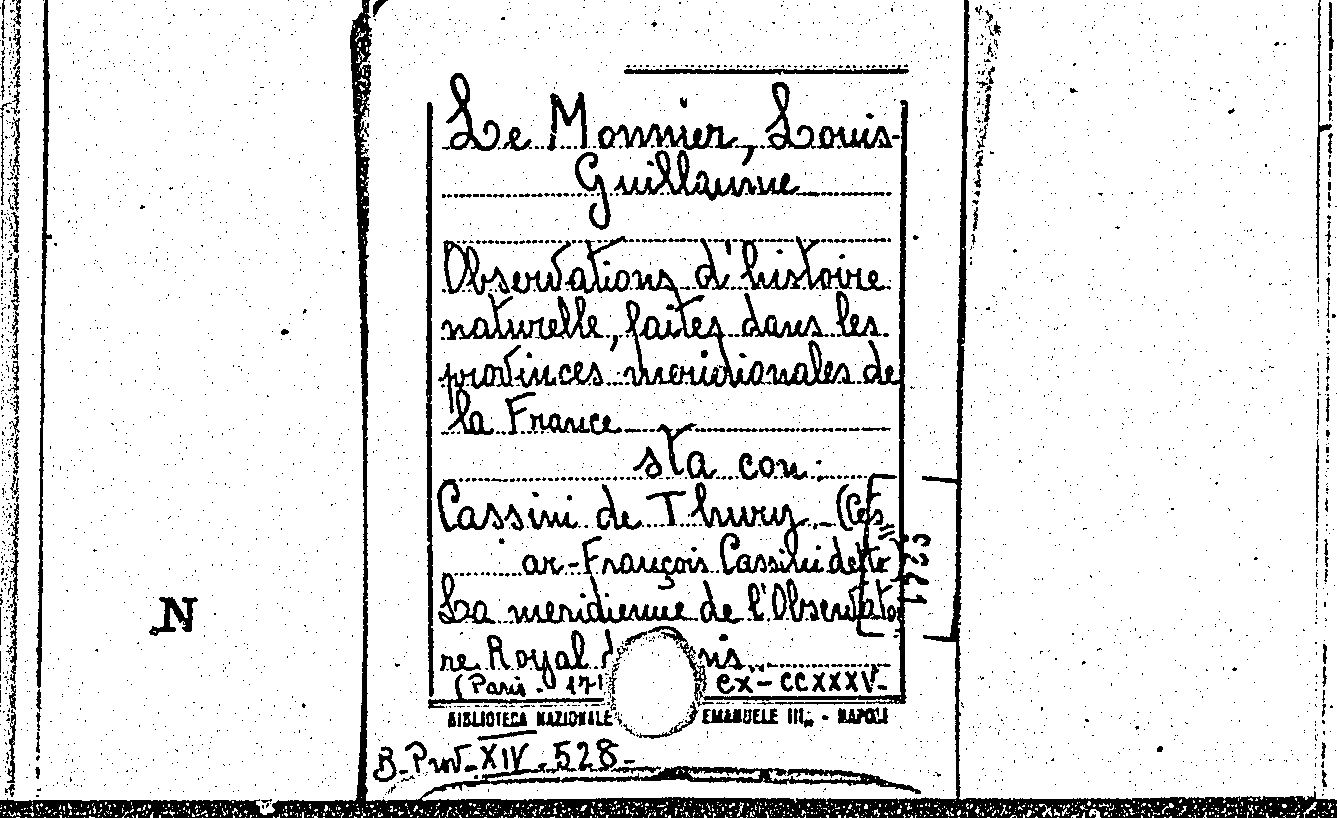 Le Monnier, Louis-
Guillaume
Observations d'histoire
naturelle, faites dans les
provinces meridionales de
la France
sta con:
Cassini de Thury. - (Cés
ar-François Cassini de
La meridienne de l'Observatoi
re Royal
(Paris - 17 CX - CCXXXV-
BIBLIOTECA NAZIONALE EMANUELE III, - NAPOLI
B. Prov. XIV - 528-
N